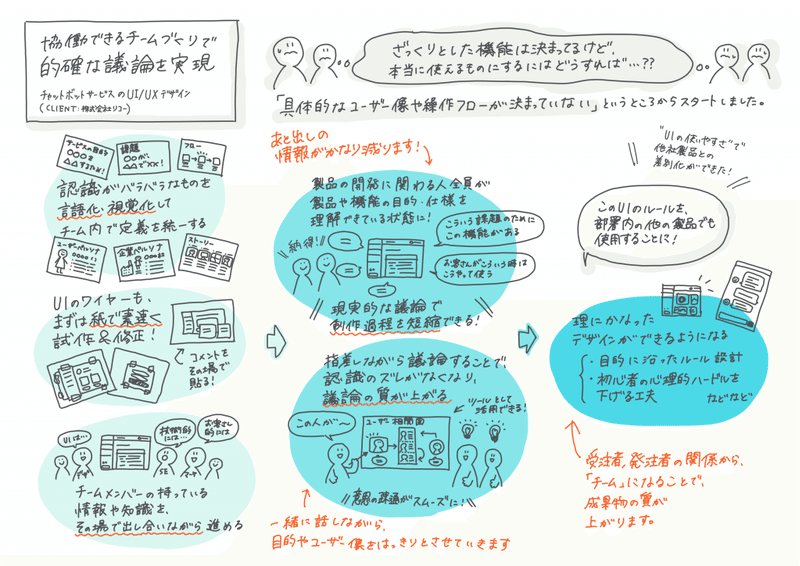 協働できるチームづくりで
的確な議論を実現
チャットボットサービスのUI/UXデザイン
(CLIENT:株式会社リコー)
ざっくりとした機能は決まってるけど、
本当に使えるものにするにはどうすれば…??
「具体的なユーザー像や操作フローが決まっていない」というところからスタートしました。
サービスの目的
○○を
△△するため!
課題
○○が、
△△で××!
フロー
認識がバラバラなものを
言語化・視覚化して
チーム内で定義を統一する
ユーザーペルソナ
企業ペルソナ
ストーリー
UIのワイヤーも、
まずは紙で素速く
試作&修正!
コメントを
その場で
貼る!
UIは…
技術的
には…
お客さん
的には
デザ
SE
チームメンバーの持っている
情報や知識を、
その場で出し合いながら進める
あと出しの
情報がかなり減ります!
製品の開発に関わる人全員が
製品や機能の目的・仕様を
理解できている状態に!
納得!
こういう課題のために
この機能がある
お客さんがこういう時は
こうやって使う
現実的な議論で
創作過程を短縮できる!
指差しながら議論することで、
認識のズレがなくなり、
議論の質が上がる
ツールとして
活用できる!
この人が〜
ユーザー相関図
意思の疎通がスムーズに!
一緒に話しながら、
目的やユーザー像をはっきりとさせていきます
"UIの使いやすさ"で
他社製品との
差別化ができた!
このUIのルールを、
部署内の他の製品でも
使用することに!
理にかなった
デザインができるようになる
・目的に沿ったルール設計
・初心者の心理的ハードルを
下げる工夫
などなど
受注者、発注者の関係から、
「チーム」になることで、
成果物の質が
上がります。